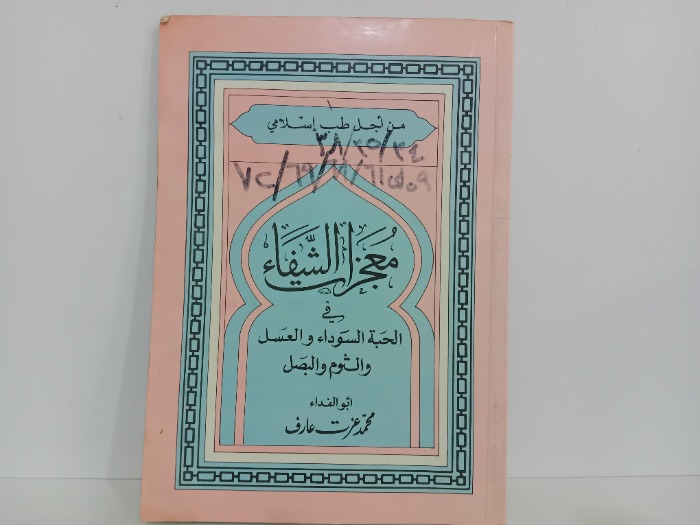 ١
من أجل طب إسلامي
٣٨/٣٥/٣٤
معجزات الشفاء
في
الحبة السوداء والعسل
والثوم والبصل
أبو الفداء
محمد عزت عارف